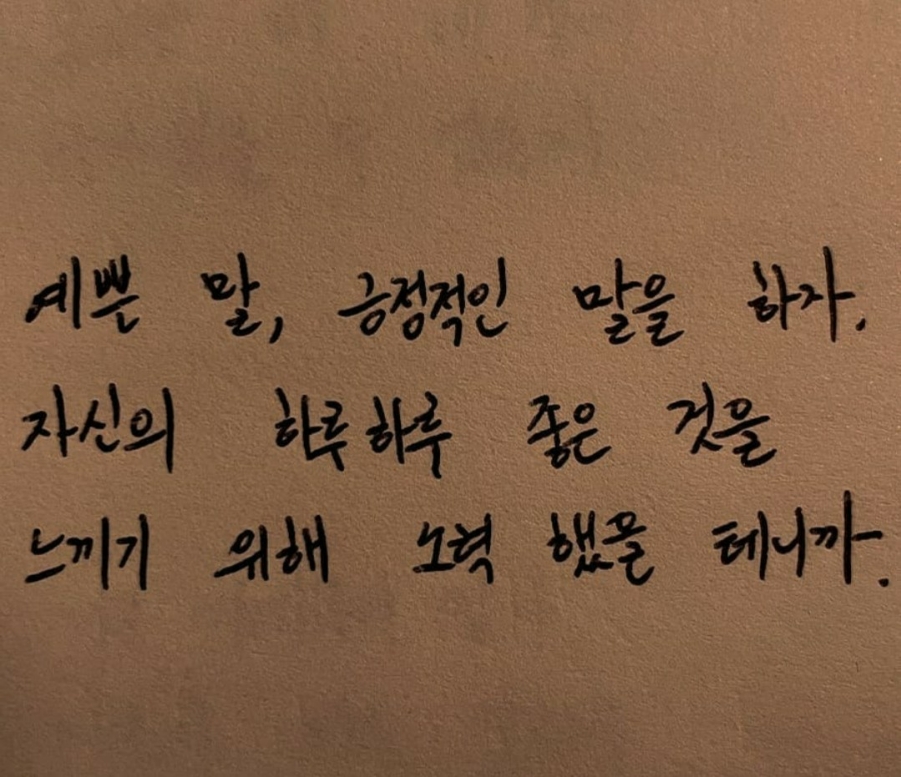 예쁜 말, 긍정적인 말을 하자.
자신의 하루하루 좋은 것을
느끼기 위해 노력 했을 테니까.